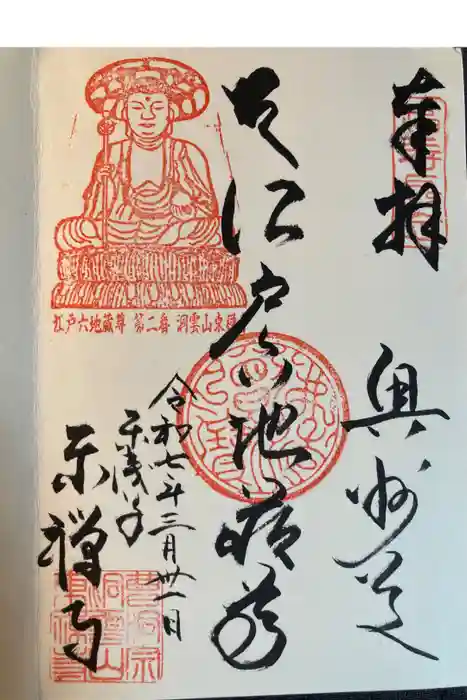 奉拝
奥州道
大江戸六地蔵尊
令和七年三月卅一日
東浅草
東禅寺
江戸六地蔵尊 第二番 洞雲山東禅
曹洞宗
洞雲山
東禅寺